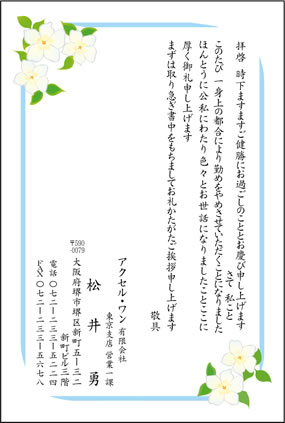 拝啓　時下ますますご健勝にお過ごしのこととお慶び申し上げます
さて　私こと
このたび　一身上の都合により勤めをやめさせていただくことになりました
ほんとうに公私にわたり色々とお世話になりましたことここに
厚く御礼申し上げます
まずは取り急ぎ書中をもちましてお礼かたがたご挨拶申し上げます
敬具
アクセル・ワン 有限会社
東京支店　営業一課
松井　勇
〒590-0079
大阪府堺市堺区新町五ー三二
新町ビル三階
電話　〇七二ー二三三ー五二二四
FAX　〇七二ー二三三ー五六七八